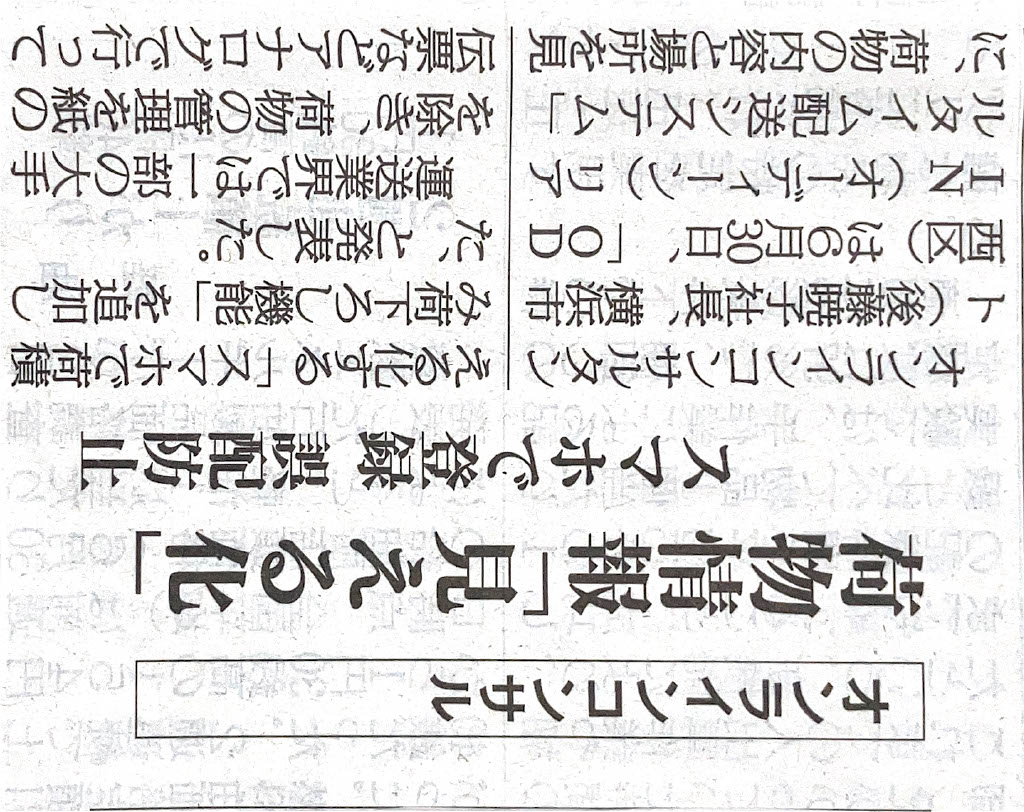 オンラインコンサル
荷物情報「見える化」
スマホで登録 誤配防止
オンラインコンサルタン
ト（後藤暁子社長、横浜市
西区）は6月30日、「OD
IN（オーディーン）リア
ルタイム配送システム」
に、荷物の内容と場所を見
える化する「スマホで荷積
み荷下ろし機能」を追加し
た、と発表した。
運送業界では一部の大手
を除き、荷物の管理を紙の
伝票などアナログで行って